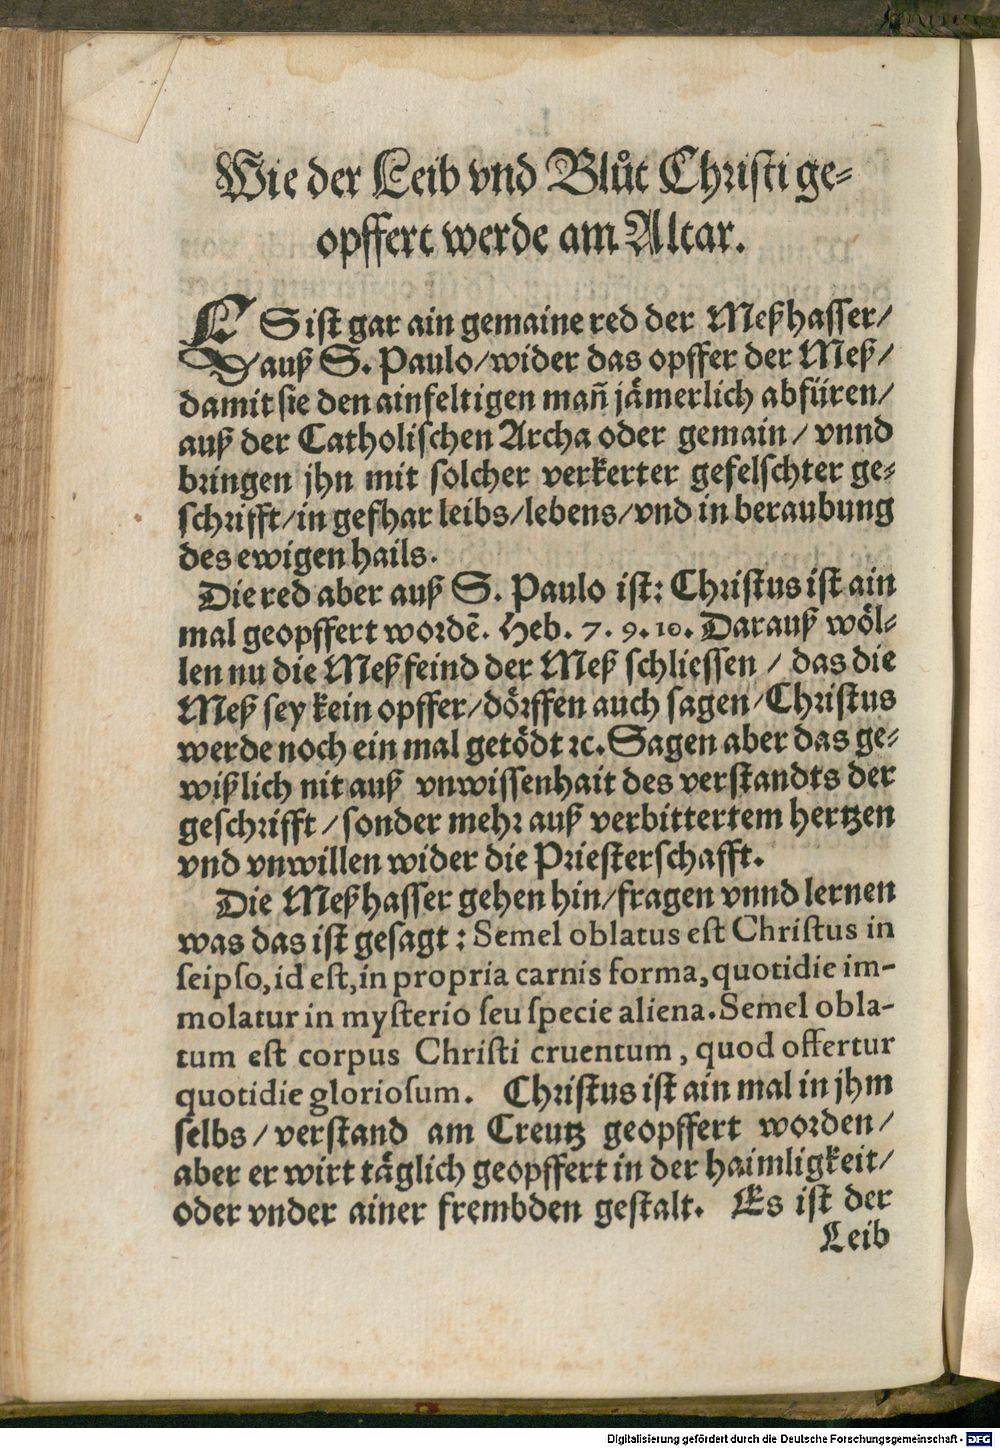 Wie der Leib vnd Blůt Christi ge⸗
opffert werde am Altar.
ES ist gar ain gemaine red der Meßhasser/
auß S. Paulo/wider das opffer der Meß/
damit sie den ainfeltigen mañ jämerlich abfüren/
auß der Catholischen Archa oder gemain/ vnnd
bringen jhn mit solcher verkerter gefelschter ge⸗
schrifft/in gefhar leibs/lebens/vnd in beraubung
des ewigen hails.
Die red aber auß S. Paulo ist: Christus ist ain
mal geopffert wordē. Heb. 7. 9. 10. Darauß wöl⸗
len nu die Meßfeind der Meß schliessen / das die
Meß sey kein opffer/dörffen auch sagen/Christus
werde noch ein mal getödt ꝛc. Sagen aber das ge⸗
wißlich nit auß vnwissenhait des verstandts der
geschrifft/sonder mehr auß verbittertem hertzen
vnd vnwillen wider die Priesterschafft.
Die Meßhasser gehen hin/fragen vnnd lernen
was das ist gesagt: Semel oblatus est Christus in
seipso, id est, in propria carnis forma, quotidie im-
molatur in mysterio seu specie aliena. Semel obla-
tum est corpus Christi cruentum, quod offertur
quotidie gloriosum. Christus ist ain mal in jhm
selbs/verstand am Creutz geopffert worden/
aber er wirt täglich geopffert in der haimligkeit/
oder vnder ainer frembden gestalt. Es ist der
Leib
Digitalisierung gefördert durch die Deutsche Forschungsgemeinschaft - DFG